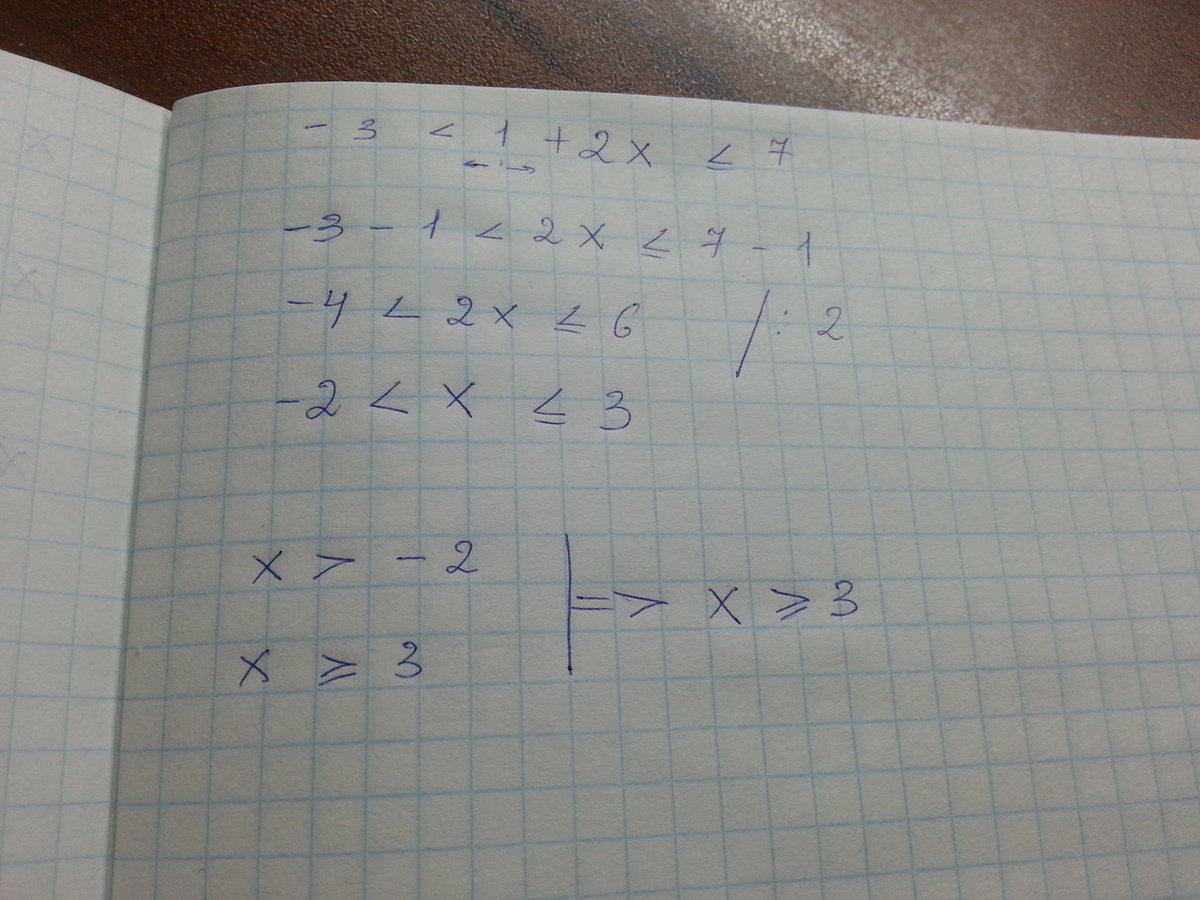 -3 < 1 + 2x ≤ 7
-3 - 1 < 2x ≤ 7 - 1
-4 < 2x ≤ 6 /: 2
-2 < x ≤ 3
x > -2
x ≥ 3
=> x ≥ 3